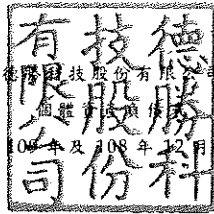 德勝科
技股份
有限公司
德勝科技股份有限公司
個體資產負債表
109 年及 108 年 12 月